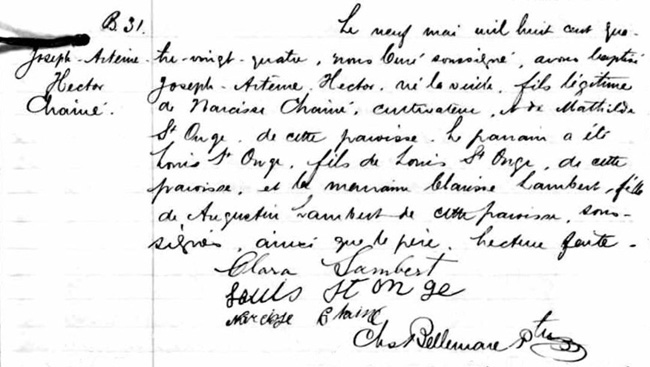 B 31.
Joseph-Arteme
Hector
Chainé.
Le neuf mai mil huit cent qua-
tre-vingt-quatre, nous curé soussigné, avons baptisé
Joseph-Arteme, Hector, né la veille, fils légitime
de Narcisse Chainé, cultivateur, et de Mathilde
St Onge, de cette paroisse. Le parrain a été
Louis St Onge, fils de Louis St Onge, de cette
paroisse, et la marraine Clarisse Lambert, fille
de Augustin Lambert de cette paroisse, sous-
signés, ainsi que le père. Lecture faite.
Clara Lambert
Louis St Onge
Narcisse Chainé
Chs Bellemare Ptre